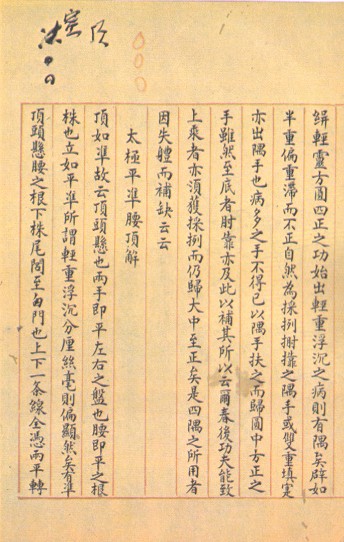 緝輕靈方圓四正之功始出輕重浮沉之病則有隅矣辟如
半重偏重滯而不正自然為採挒之隅手或雙重填寔
亦出隅手也病多之手不得已以隅手扶之而歸圓中方正之
手雖然至底者肘靠亦及此以補其所以云爾春後功夫能致
上乘者亦須獲採挒而仍歸大中至正矣是四隅之所用者
因失體而補缺云云
太極平準腰頂解
頂如準故云頂頭懸也兩手即平左右之盤也腰即平之根
株也立如平準所謂輕重浮沉分厘絲毫則偏顯然矣有準
頂頭懸腰之根下株尾閭至囟門也上下一條線全憑兩平轉